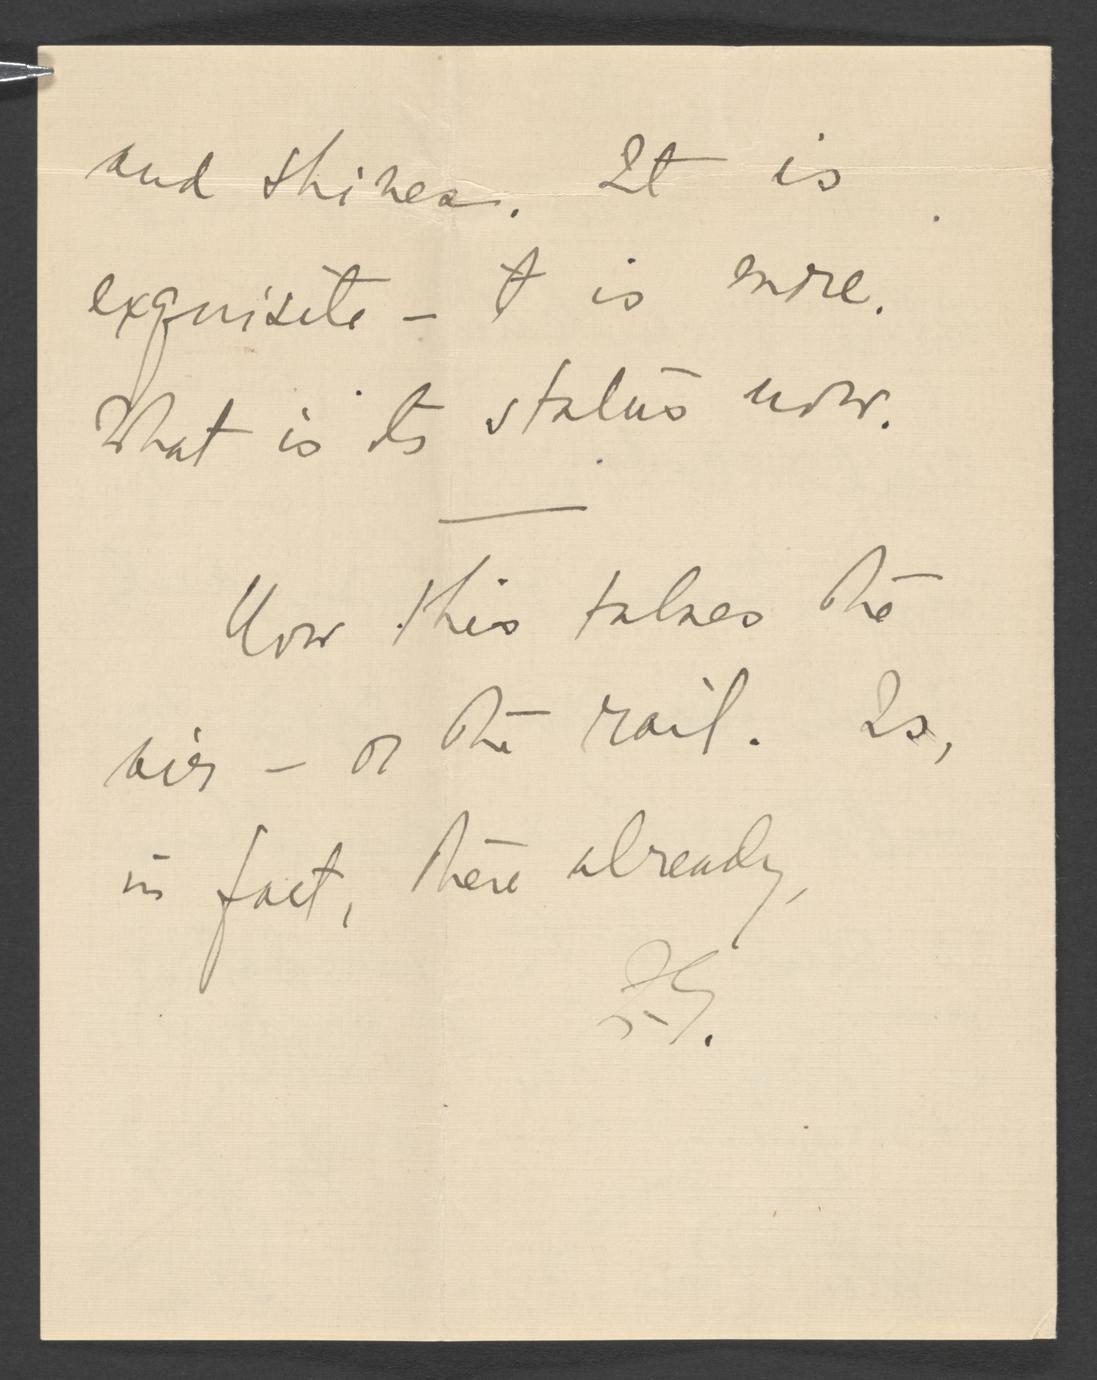 and shines. It is
exquisite – it is more.
What is its status now.
Now this takes the
air – or the rail. Is,
in fact, there already,